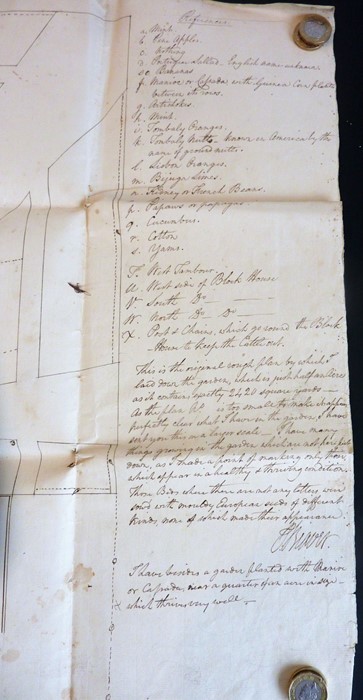 References
a. Mint.
b. Pine Apples.
c. nothing
e. Bananas
f. Manioc or Cassada with Guinean Corn planted
between the rows.
g. Artichokes
h. Mint.
i. Tombaly Oranges.
k. Tombaly Nutts - known in America by the
name of ground nutts.
l. Lisbon Oranges.
m. Bijuga Limes.
n. Kidney or French Beans.
p. Papaws or papayas
q. Cucumbers.
r. Cotton
s. Yams.
T. West Tambour
U. West side of Block House
V. South Do
W. North Do Do
X. Posts & Chains, which go round the Block
House to keep the Cattle out.
This is the original rough plan by which I
laid down the garden, which is just half an Acre
as it contains exactly 2420 square yards —
As the plan is too small to make
perfectly clear what I have in the garden, I have
sent you this on a larger scale. I have many
things growing in the garden which are not here put
down, as I made a point of marking only those
which appear in a healthy & thriving condition.
Those Beds where there are not any letters were
sowd with mouldy European seeds of different
kinds, none of which made their appearance
P Beaver.
I have besides a garden planted with Manioc
or Cassada, near a quarter of an acre in size
which thrives very well —